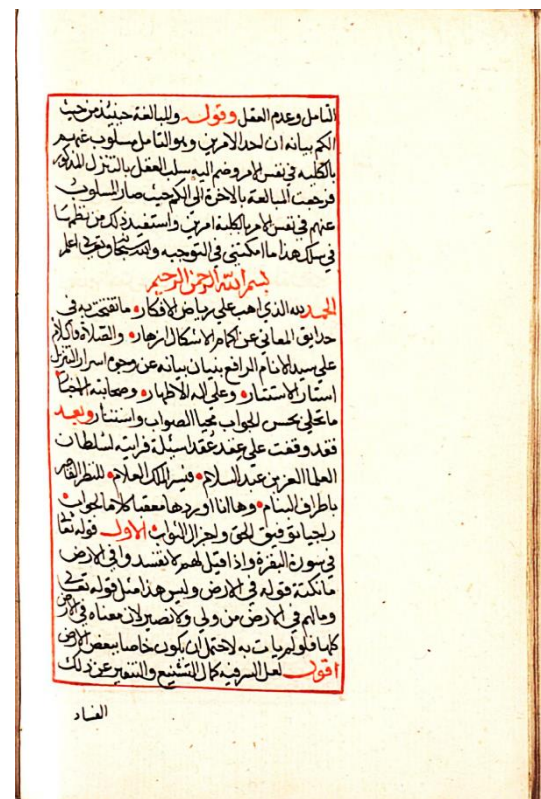 التامل وعدم العقل وقوله وللبالغة حينئذ من حيث
الكم بيانه ان احد الامرين وهو التامل مسلوب عنهم
بالكلية في نفس الامر وضم اليه سلب العقل بالتنزل المذكور
فرجعت المبالغة بالاخرة الى الكم حيث صار المسلوب
عنهم في نفس الامر بالكلية امرين واستفيد ذلك من نظمها
في سلك هذا ما امكنني في التوجيه والله سبحانه وتعالى اعلم
بسم الله الرحمن الرحيم
الحمد لله الذي اهب علي رياض الافكار ما تفتحت به في
حدايق المعاني عن اكمام الاشكال ازهار والصلاة والسلام
علي سيد الانام الرافع ببنيان بيانه عن وجوه اسرار التنزل
استار الاستتار وعلي اله الاطهار وصحابته
ما تجلي بحسن الجواب محيا الصواب واستنار وبعد
فقد وقفت علي عقد عقد اسئلة فرايته لسلطان
العلما العز بن عبد السلام فيسر الملك العلام للنظر القاصر
باطراف البنام وها انا اوردها معقبا كلا منها بالجواب
راجيا توفيق الحق واجزال الثواب الاول قوله تعا
في سورة البقرة واذا قيل لهم لا تفسدوا في الارض
ما نكتة قوله في الارض وليس هذا مثل قوله تعالى
وما لهم في الارض من ولي ولا نصير لان معناه في الارض
كلها فلو لم يات به لاحتمل ان يكون خاصا ببعض الارض
اقول لعل السر فيه كمال التشنيع والتنفير عن ذلك
الفساد